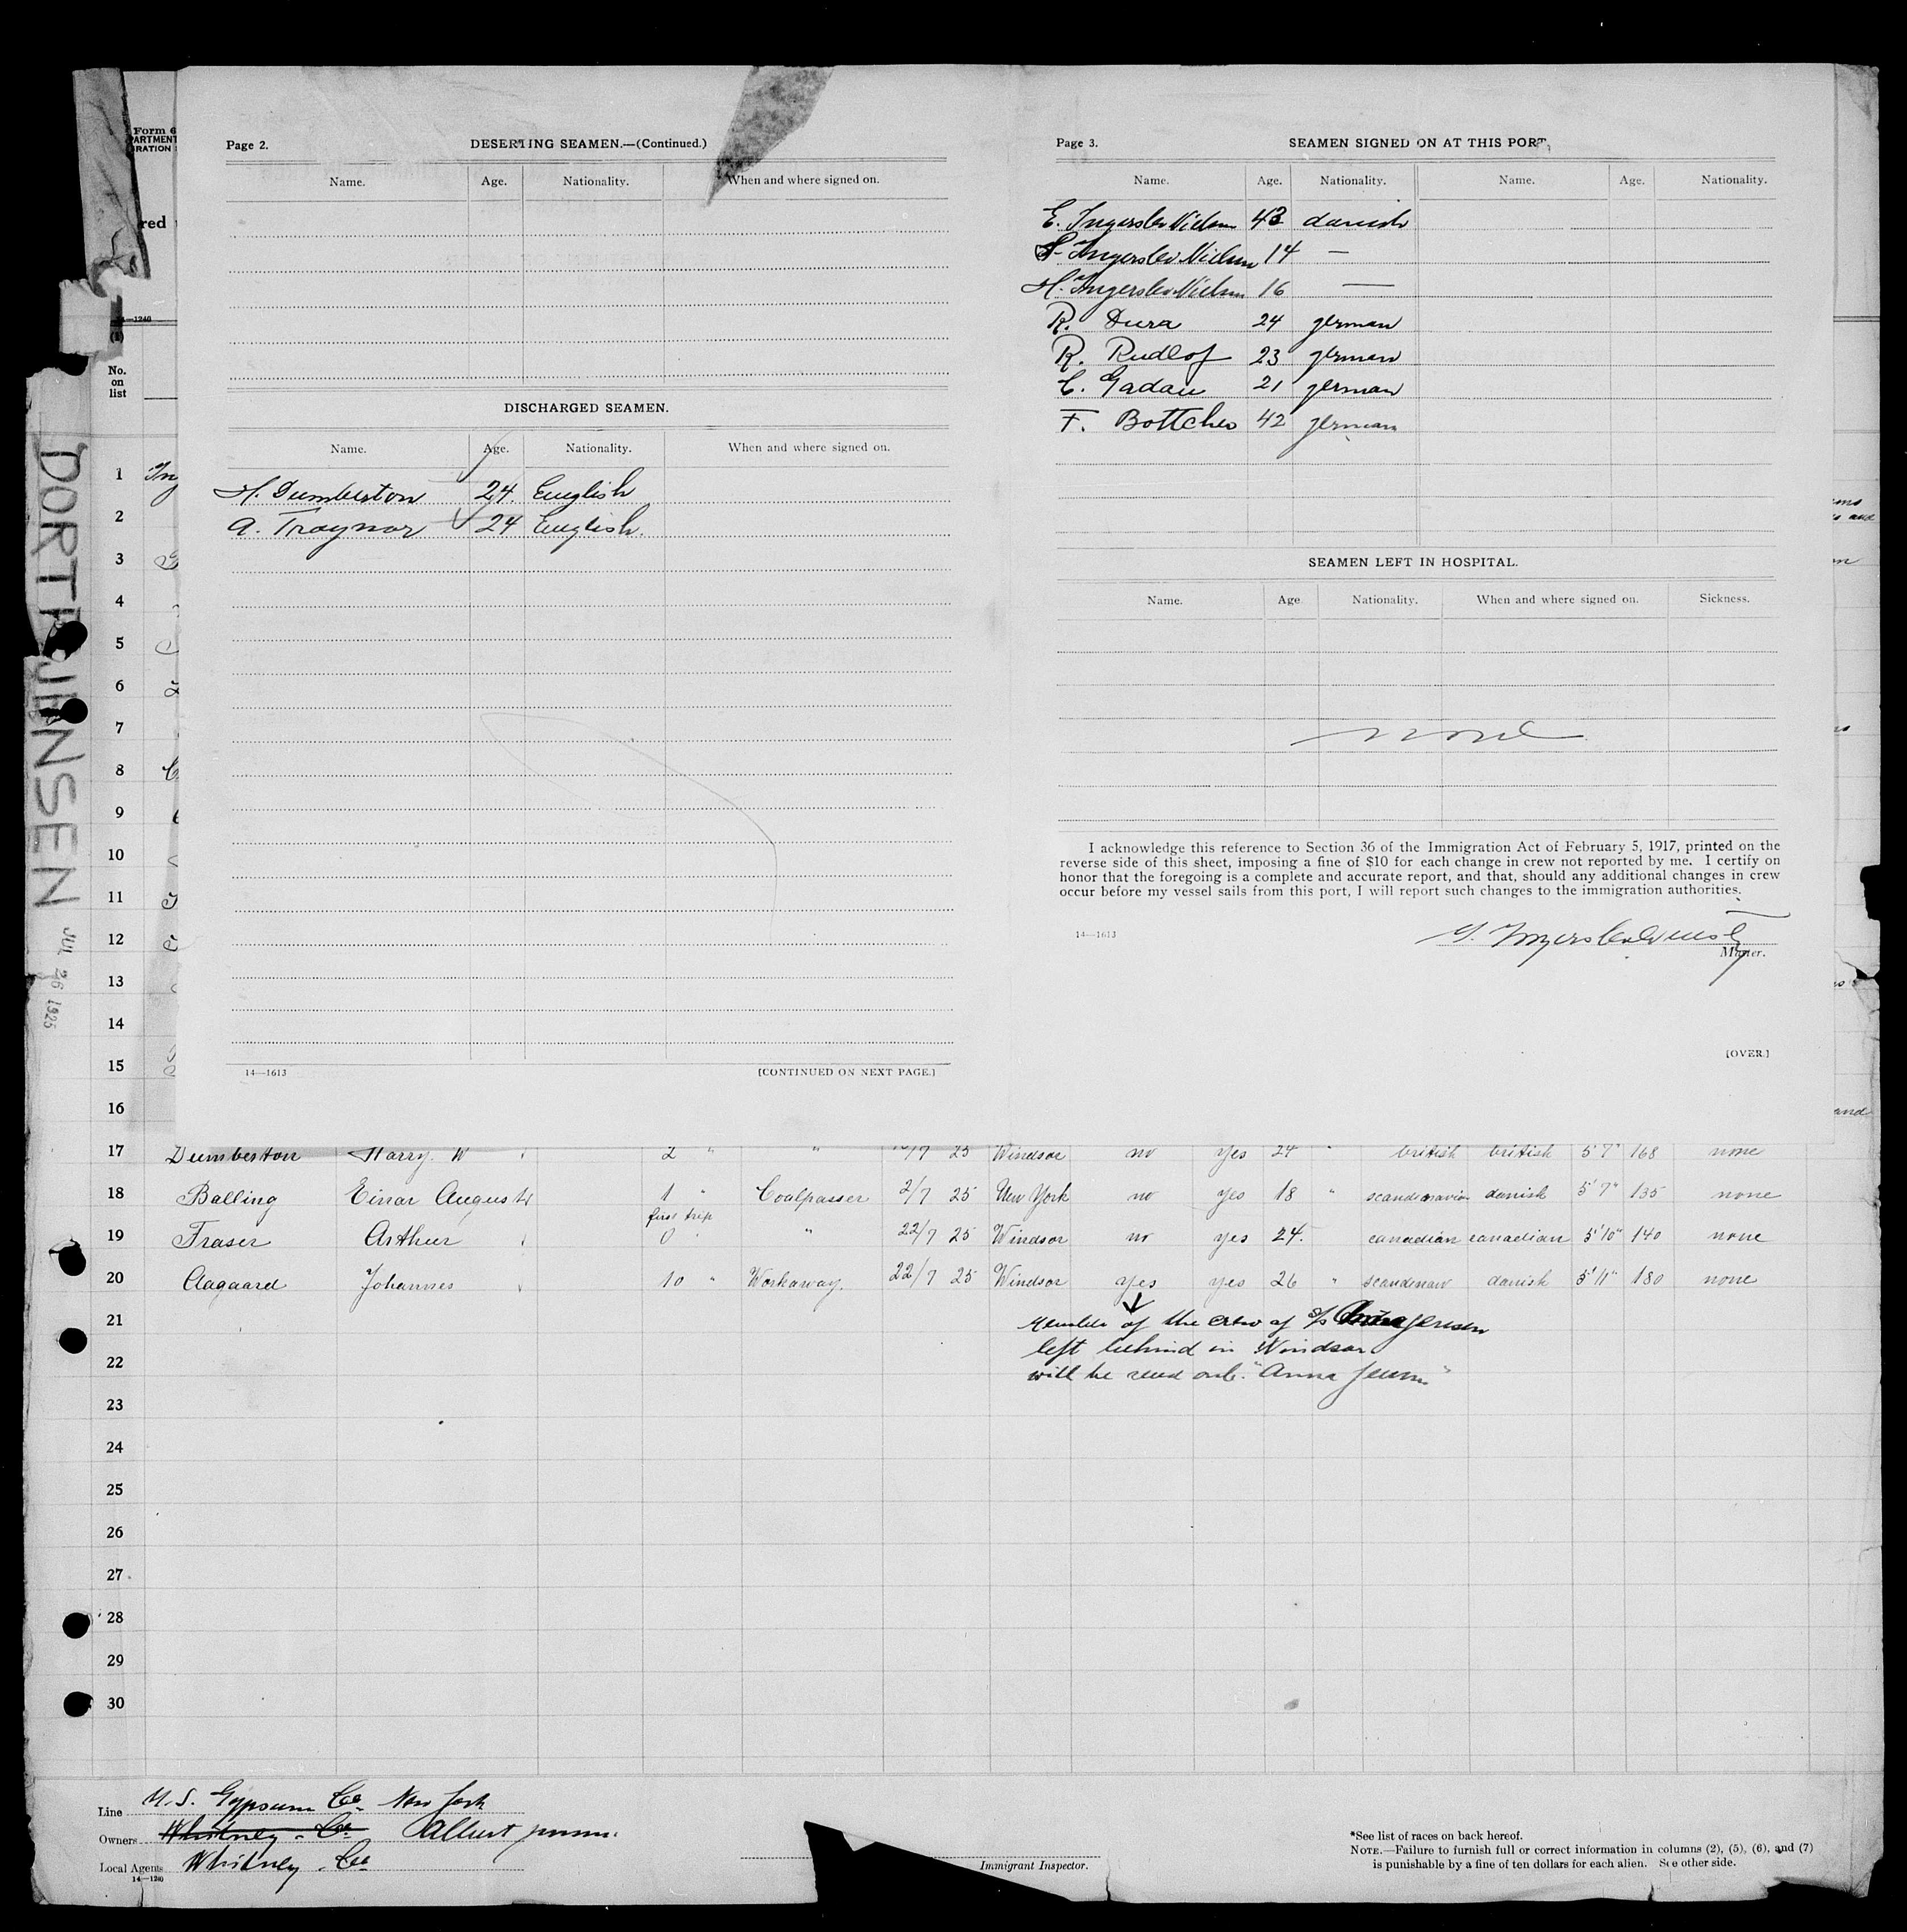 Form 6
PARTMENT
RATION
red
14—1240
(1)
No.
on
list
DORTH JENSEN
JUL 26 1925
Page 2.
DESERTING SEAMEN.—(Continued.)
Name. Age. Nationality. When and where signed on.
DISCHARGED SEAMEN.
Name. Age. Nationality. When and where signed on.
H. Dumberton 24. English
A. Traynor 24 English.
14—1613
[CONTINUED ON NEXT PAGE.]
Page 3.
SEAMEN SIGNED ON AT THIS PORT.
Name. Age. Nationality. Name. Age. Nationality.
E. Ingerslev Nielsen 43 danish
Ingerslev Nielsen 14 —
H. Ingerslev Nielsen 16 —
R. Dura 24 german
R. Rudlof 23 german
C. Gadau 21 german
F. Bottcher 42 german
SEAMEN LEFT IN HOSPITAL.
Name. Age Nationality. When and where signed on. Sickness.
none
I acknowledge this reference to Section 36 of the Immigration Act of February 5, 1917, printed on the
reverse side of this sheet, imposing a fine of $10 for each change in crew not reported by me. I certify on
honor that the foregoing is a complete and accurate report, and that, should any additional changes in crew
occur before my vessel sails from this port, I will report such changes to the immigration authorities.
14—1613
Master.
[OVER.]
1 Ing
2
3
4
5
6
7
8
9
10
11
12
13
14
15
16 and
17 Dumberton Harry. W 2 " " /7 25 Windsor no yes 24 " british british 5'7" 168 none
18 Balling Einar August 1 " Coalpasser 2/7 25 New York no yes 18 " scandinavian danish 5'7" 135 none
first trip
19 Fraser Arthur 0 " 22/7 25 Windsor no yes 24. canadian canadian 5'10" 140 none
20 Aagaard Johannes 10 " Workaway. 22/7 25 Windsor yes yes 26 " scandinav danish 5'11" 180 none
21 member of the crew of s/s Anna Jensen
22 left behind in Windsor
will be send onb. "Anna Jensen"
23
24
25
26
27
28
29
30
Line U.S. Gypsum Co. New York
Owners Whitney. Co. Albert Jensen.
Local Agents Whitney. Co
14—1240
Immigrant Inspector.
*See list of races on back hereof.
NOTE.—Failure to furnish full or correct information in columns (2), (5), (6), and (7)
is punishable by a fine of ten dollars for each alien. See other side.